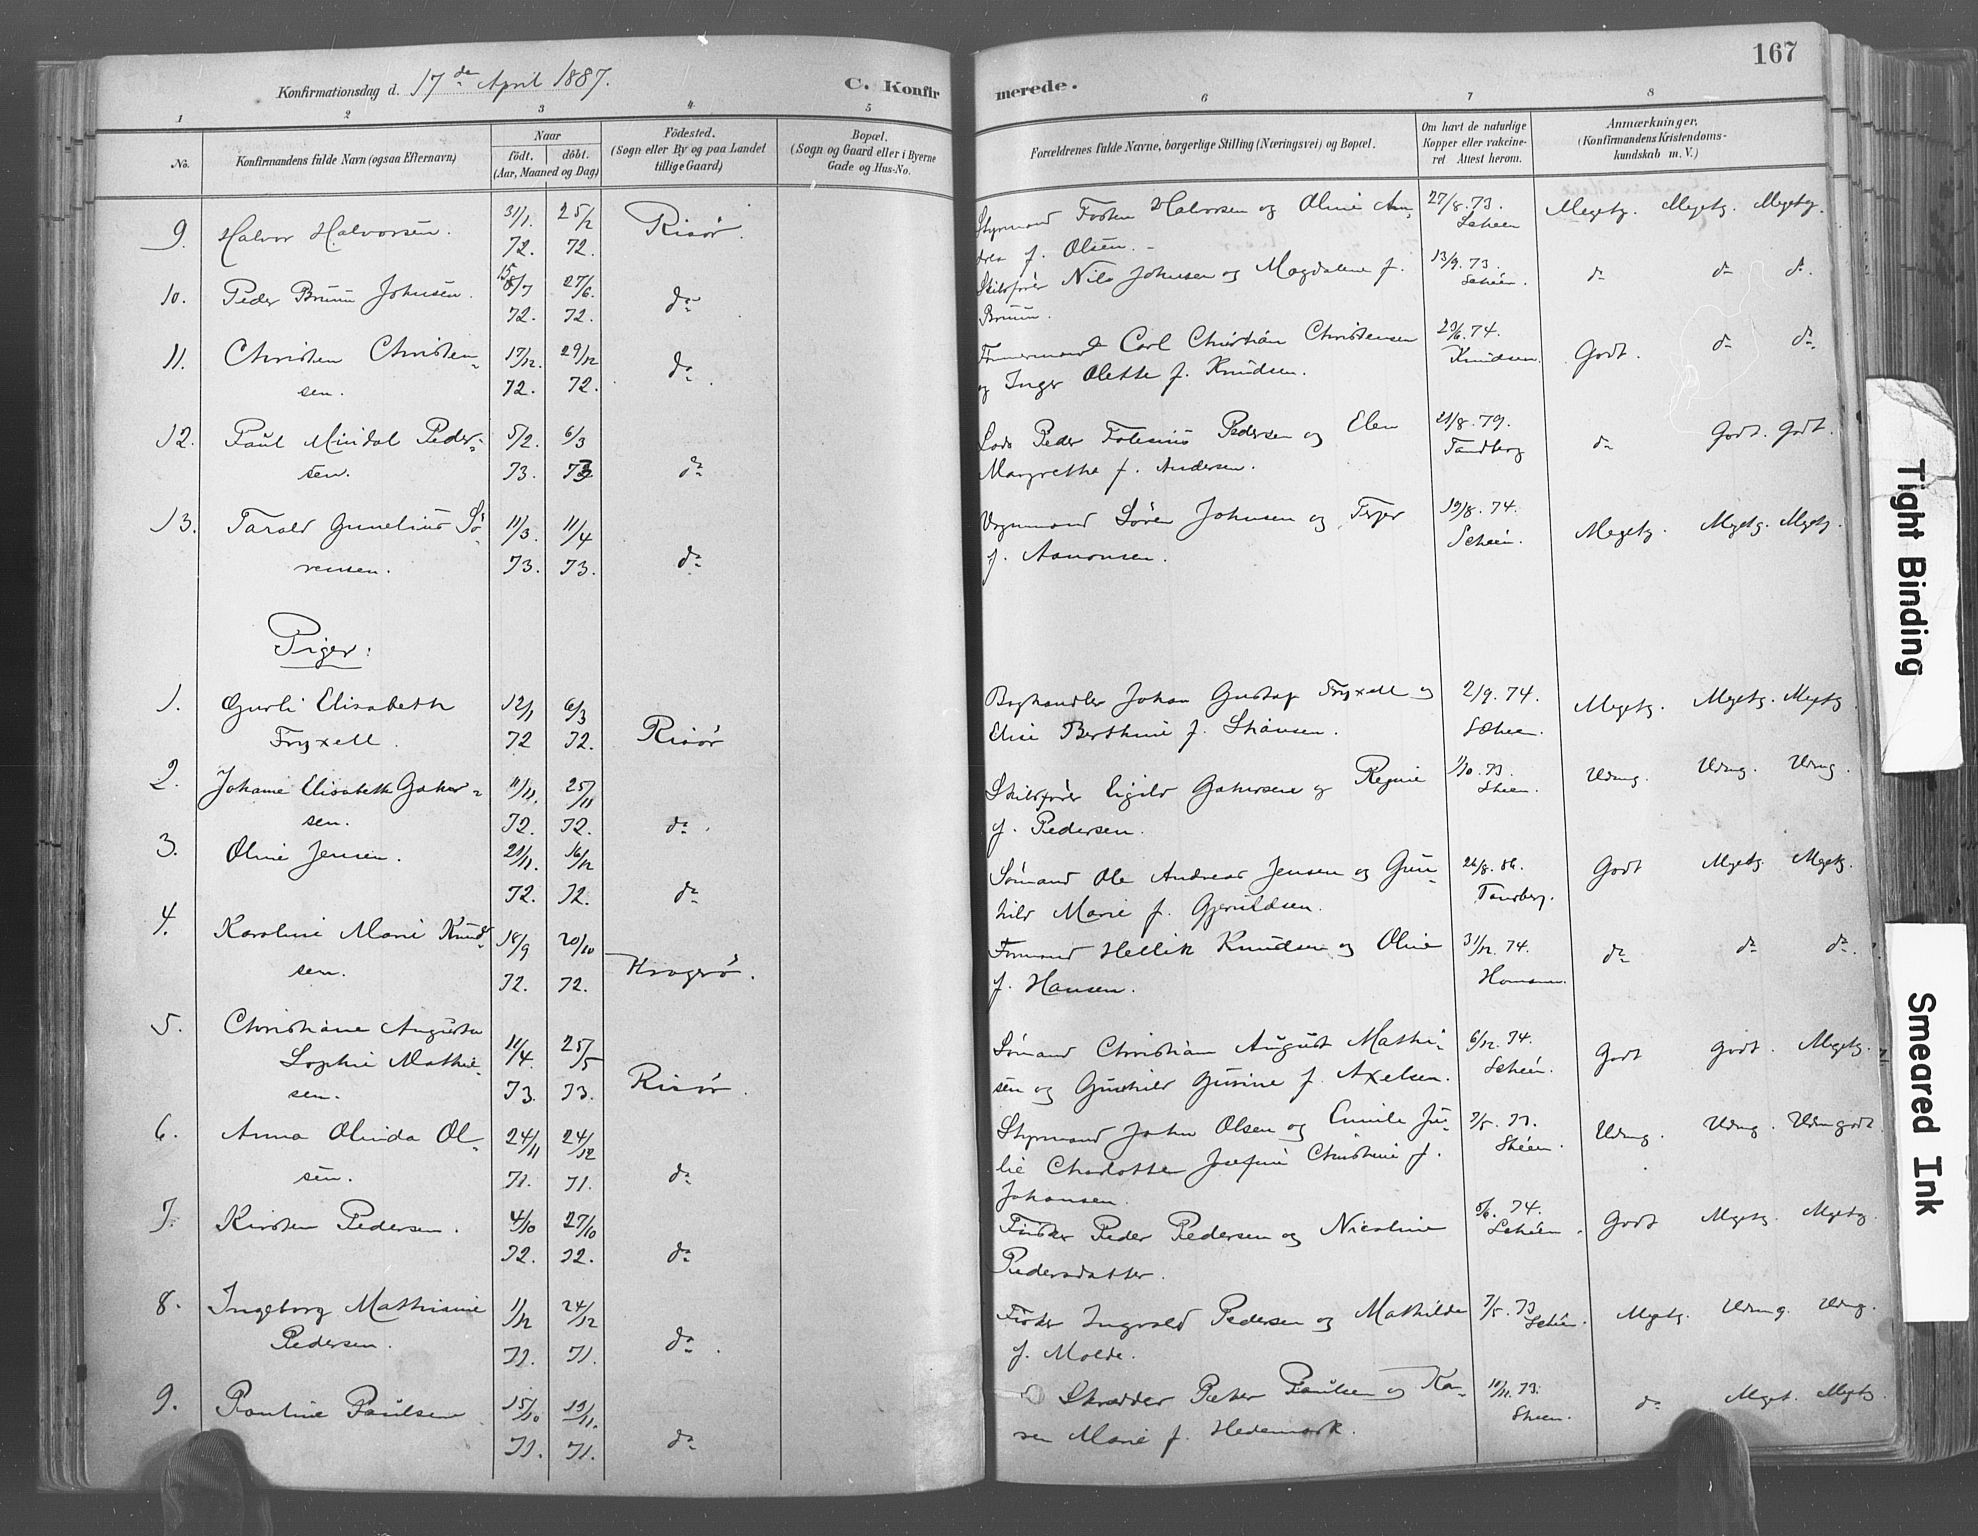 167
Konfirmationsdag d. 17de April 1887. C. Konfirmerede.
1 2 3 4 5 6 7 8
No. Konfirmandens fulde Navn (ogsaa Efternavn) Naar født. døbt. (Aar, Maaned og Dag) Fødested. (Sogn eller By og paa Landet tillige Gaard) Bopæl. (Sogn og Gaard eller i Byerne Gade og Hus-No. Forældrenes fulde Navne, borgerlige Stilling (Næringsvei) og Bopæl. Om havt de naturlige Kopper eller vakcineret Attest herom. Anmærkninger, (Konfirmandens Kristendomskundskab m. V.)
9. Halvor Halvorsen. 31/1. 72. 25/2 72. Risør. Styrmand Halvorsen og Oline Andrea f. Olsen. 27/8. 73. Scheen Megetg. Megetg. Megetg.
10. Peder Bruun Johnsen. 72. 27/6. 72. do Skibsfører Nils Johnsen og Magdalene f. Bruun. 13/9. 73. Scheen. do do do
11. Christen Christensen. 17/12. 72. 29/12 72. do Tømmermand Carl Christian Christensen og Inger Olette f. Knudsen. 74. Knudsen. Godt. do do
12. Paul Mindal Pedersen. 5/2. 73. 6/3 73 do Lods Peder Pedersen og Elen Margrethe f. Andersen. 21/8. 79. Tandberg do Godt. Godt.
13. Tarald Gunelius Sørensen. 11/3. 73. 11/4 73. do Vognmand Søren Johnsen og f. Aanonsen. 19/8. 74. Scheen. Megetg. Megetg. Megetg.
Piger:
1. Gurli Elisabeth Fryxell. 12/1 72 6/3 72. Risør Boghandler Johan Gustaf Fryxell og Elise Berthine f. 2/9. 74. Scheen. Megetg. Megetg. Megetg
2. Johanne Elisabeth 11/11. 72. 25/11 72. do. Skibsfører Eigild og Regine f. Pedersen. 1/10. 73. Scheen. Udmg. Udmg. Udmg.
3. Oline Jensen. 21/11. 72. 16/12 72. do Sømand Ole Andreas Jensen og Gunhild Marie f. Gjeruldsen. 26/8. 86. Tandberg. Godt Megetg. Megetg.
4. Karoline Marie Knudsen. 18/9 72. 20/10 72. Kragerø. Formand Hellik Knudsen og Oline f. Hansen. 31/12. 74. Homann. do do do
5. Christiane Augusta Sophie Mathiesen. 11/4. 73. 25/5 73. Risør. Sømand Christian August Mathisen og Gunhild Gurine f. Axelsen. 6/12. 74. Scheen. Godt Godt. Megetg.
6. Anna Olinda Olsen. 24/11 71. 24/12 71. do Styrmand John Olsen og Emilie Julie Charlotte Josefine Christine f. Johansen. 7/5. 73. Scheen. Udmg. Udmg. Udmgodt
7. Kirsten Pedersen. 4/10 72. 27/10 72. do Fisker Peder Pedersen og Nicoline Pedersdatter. 8/6. 74. Scheen. Godt Megetg. Megetg.
8. Ingeborg Mathisine Pedersen. 11/12 71. 24/12 71. do. Fisker Ingvald Pedersen og Mathilde f. Molde. 7/5. 73 Scheen. Megetg. Udmg. Udmg.
9. Pauline Paulsen 15/10 71. 19/11. 71. do Skrædder Peter Paulsen og Karen Marie f. Hedemark. 73. Scheen. do Meget. Megetg.
Tight Binding
Smeared Ink